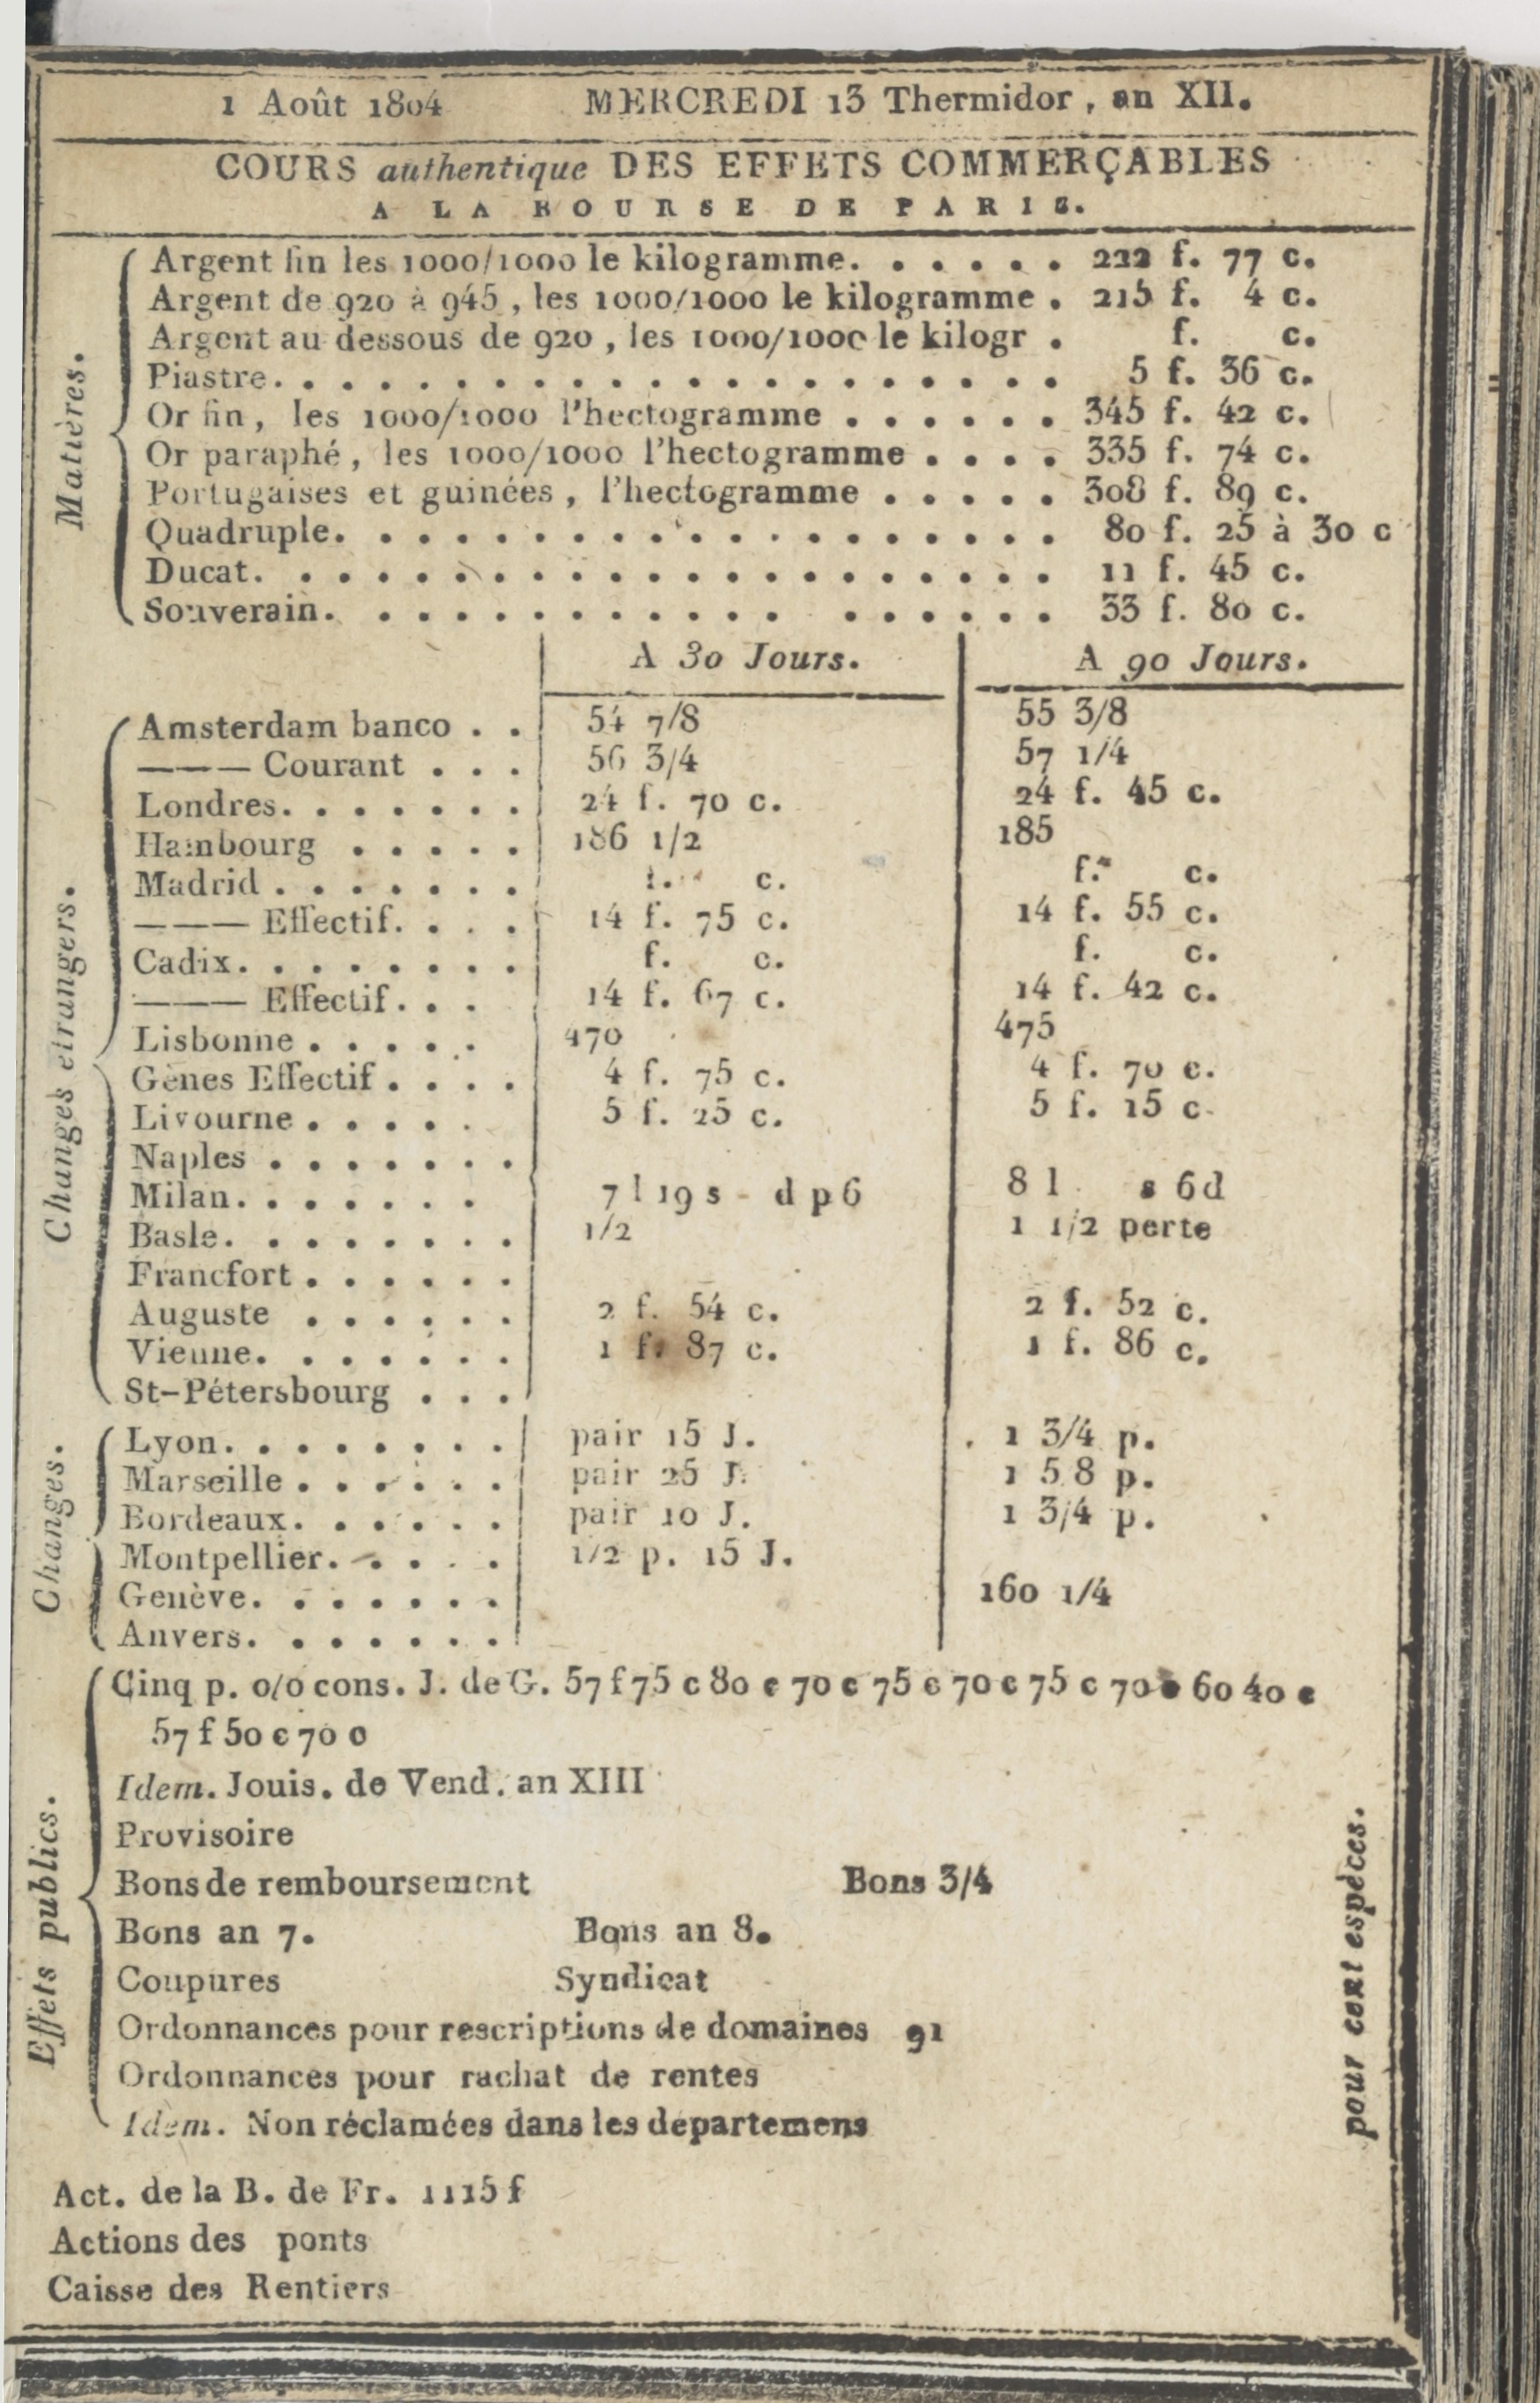 1 Août 1804 MERCREDI 13 Thermidor, an XII.
COURS authentique DES EFFETS COMMERÇABLES
A LA BOURSE DE PARIS.
Matières.
Argent fin les 1000/1000 le kilogramme. . . . . . 222 f. 77 c.
Argent de 920 à 945, les 1000/1000 le kilogramme . 215 f. 4 c.
Argent au dessous de 920, les 1000/1000 le kilogr . f. c.
Piastre. . . . . . . . . . . . . . . . . . . . . 5 f. 36 c.
Or fin, les 1000/1000 l'hectogramme . . . . . . 345 f. 42 c.
Or paraphé, les 1000/1000 l'hectogramme . . . . 335 f. 74 c.
Portugaises et guinées, l'hectogramme . . . . . 308 f. 89 c.
Quadruple. . . . . . . . . . . . . . . . . . . 80 f. 25 à 30 c
Ducat. . . . . . . . . . . . . . . . . . . . . 11 f. 45 c.
Souverain. . . . . . . . . . . . . . . . . . 33 f. 80 c.
A 30 Jours. A 90 Jours.
Changes etrangers.
Amsterdam banco . . 54 7/8 55 3/8
——— Courant . . . 56 3/4 57 1/4
Londres. . . . . . . 24 f. 70 c. 24 f. 45 c.
Hambourg . . . . . 186 1/2 185
Madrid . . . . . . . f. c. f. c.
——— Effectif. . . . 14 f. 75 c. 14 f. 55 c.
Cadix. . . . . . . . f. c. f. c.
——— Effectif. . . 14 f. 67 c. 14 f. 42 c.
Lisbonne . . . . . 470 475
Gènes Effectif . . . . 4 f. 75 c. 4 f. 70 c.
Livourne . . . . . 5 f. 25 c. 5 f. 15 c.
Naples . . . . . . .
Milan. . . . . . . 7 l 19 s d p 6 8 l s 6 d
Basle. . . . . . . . 1/2 1 1/2 perte
Francfort . . . . . .
Auguste . . . . . . 2 f. 54 c. 2 f. 52 c.
Vienne. . . . . . . 1 f. 87 c. 1 f. 86 c.
St-Pétersbourg . . .
Changes.
Lyon. . . . . . . . pair 15 J. 1 3/4 p.
Marseille . . . . . . pair 25 J. 1 5 8 p.
Bordeaux. . . . . . pair 10 J. 1 3/4 p.
Montpellier. . . . . 1/2 p. 15 J.
Genève. . . . . . . 160 1/4
Anvers. . . . . . .
Effets publics.
Cinq p. 0/0 cons. J. de G. 57 f 75 c 80 c 70 c 75 c 70 c 75 c 70 c 60 40 c
57 f 50 c 70 c
Idem. Jouis. de Vend. an XIII
Provisoire
Bons de remboursement Bons 3/4
Bons an 7. Bons an 8.
Coupures Syndicat
Ordonnances pour rescriptions de domaines 91
Ordonnances pour rachat de rentes
Idem. Non réclamées dans les departemens
pour cent espéces.
Act. de la B. de Fr. 1115 f
Actions des ponts
Caisse des Rentiers